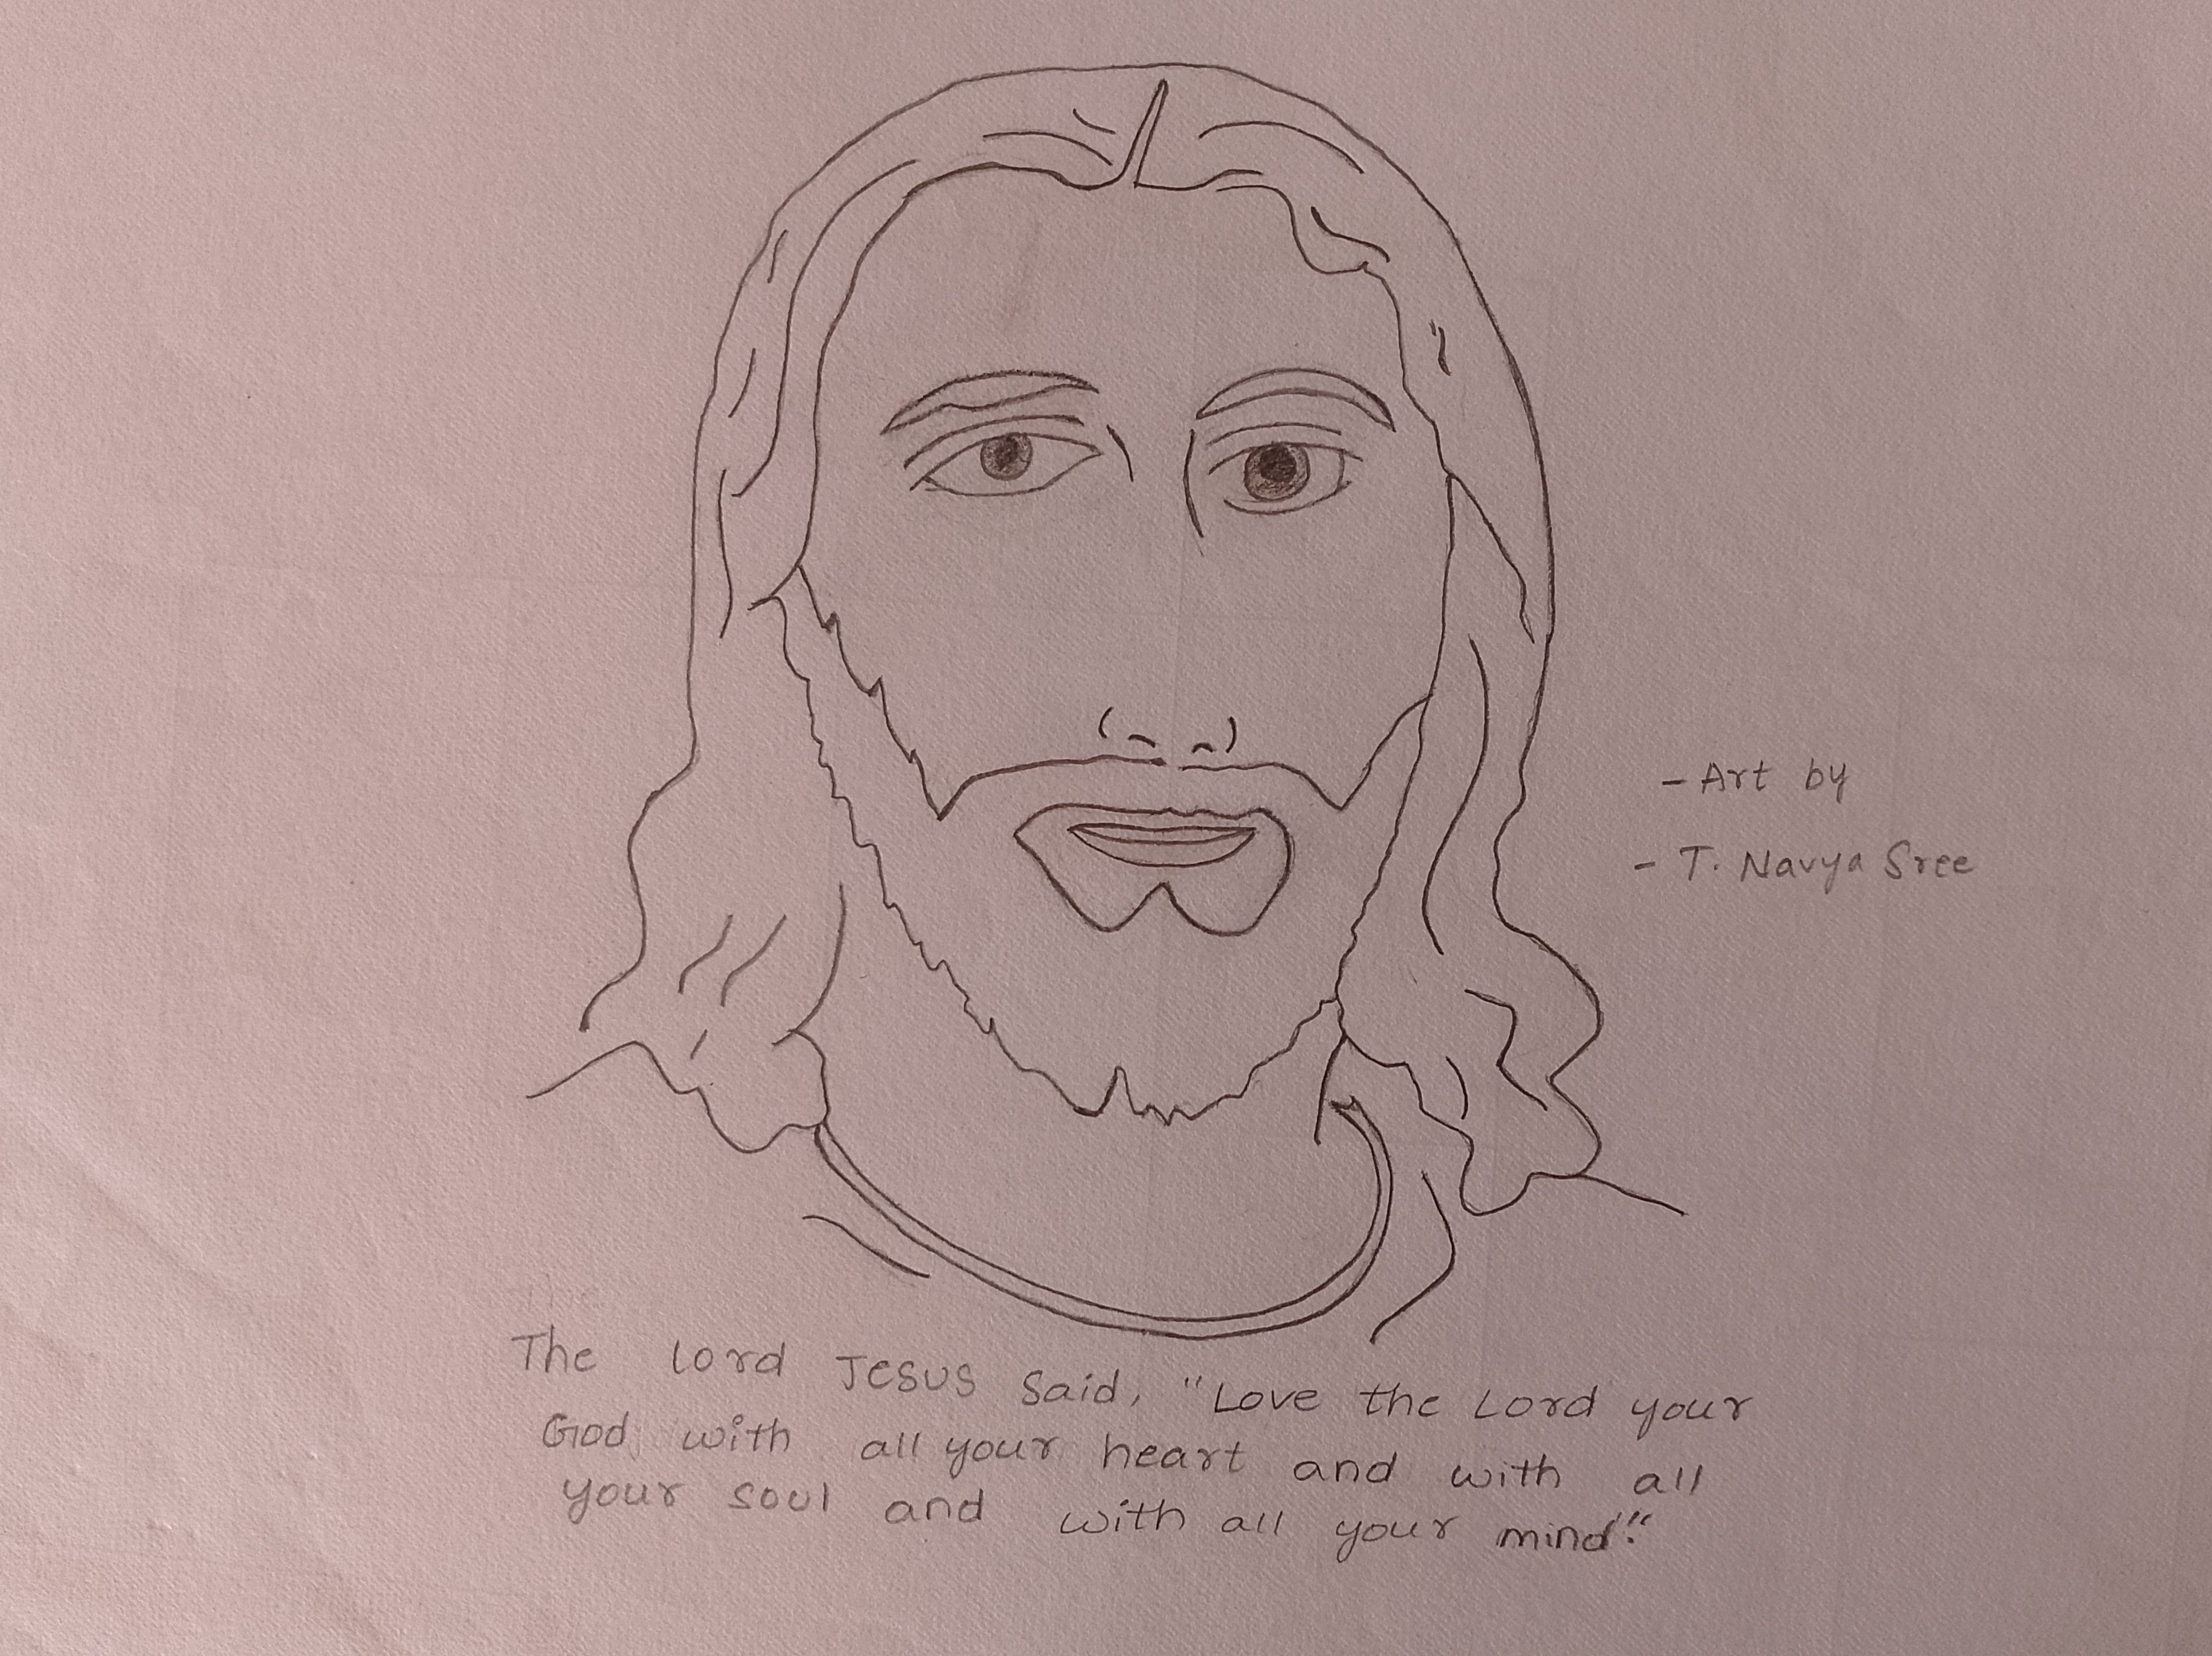 - Art by
- T. Navya Sree
The lord JESUS said, "Love the Lord your
God with all your heart and with all
your soul and with all your mind".